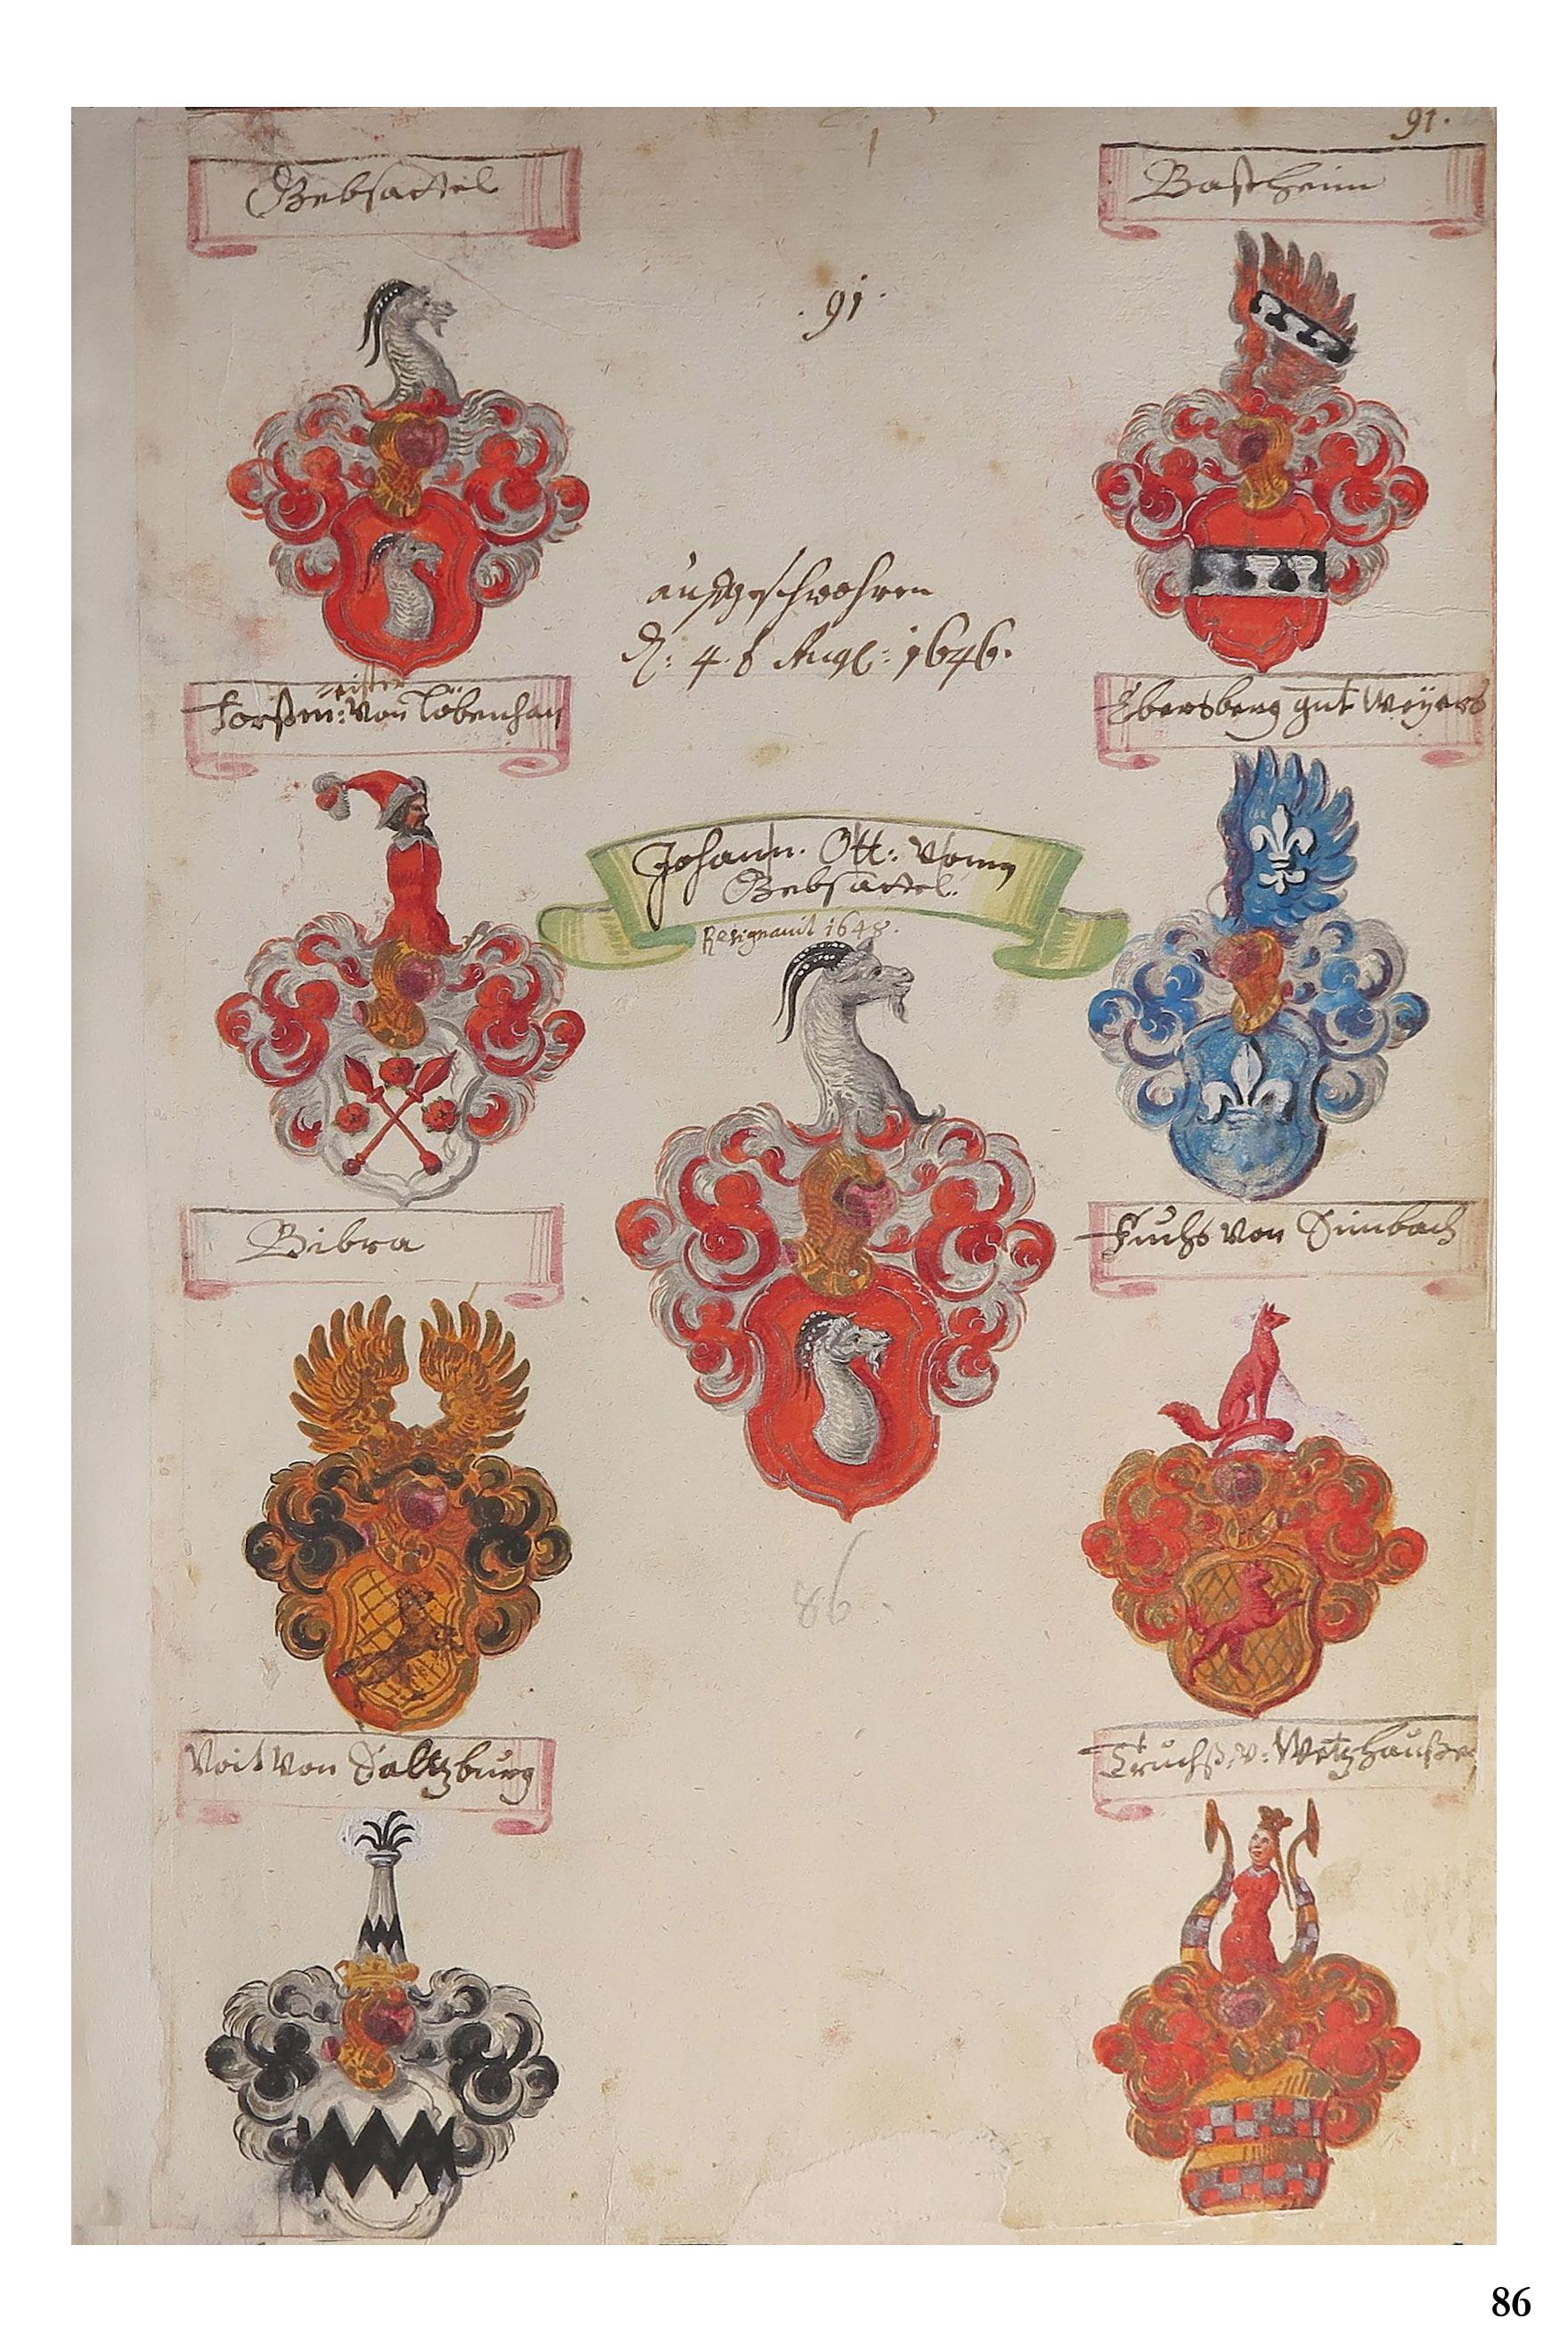 91.
Gebsattel
Bastheim
.91.
aufgeschwohren
d: 4. 8 Augl: 1646.
meister
Forstm: von Löbenhan
Ebersberg gnt Weÿers
Johann. Ott: vonn
Gebsattel.
Resignauit 1648.
Bibra
Fuchs von Dimbach
86.
Voit von Saltzburg
Truchß. v: Wetzhaußen
86